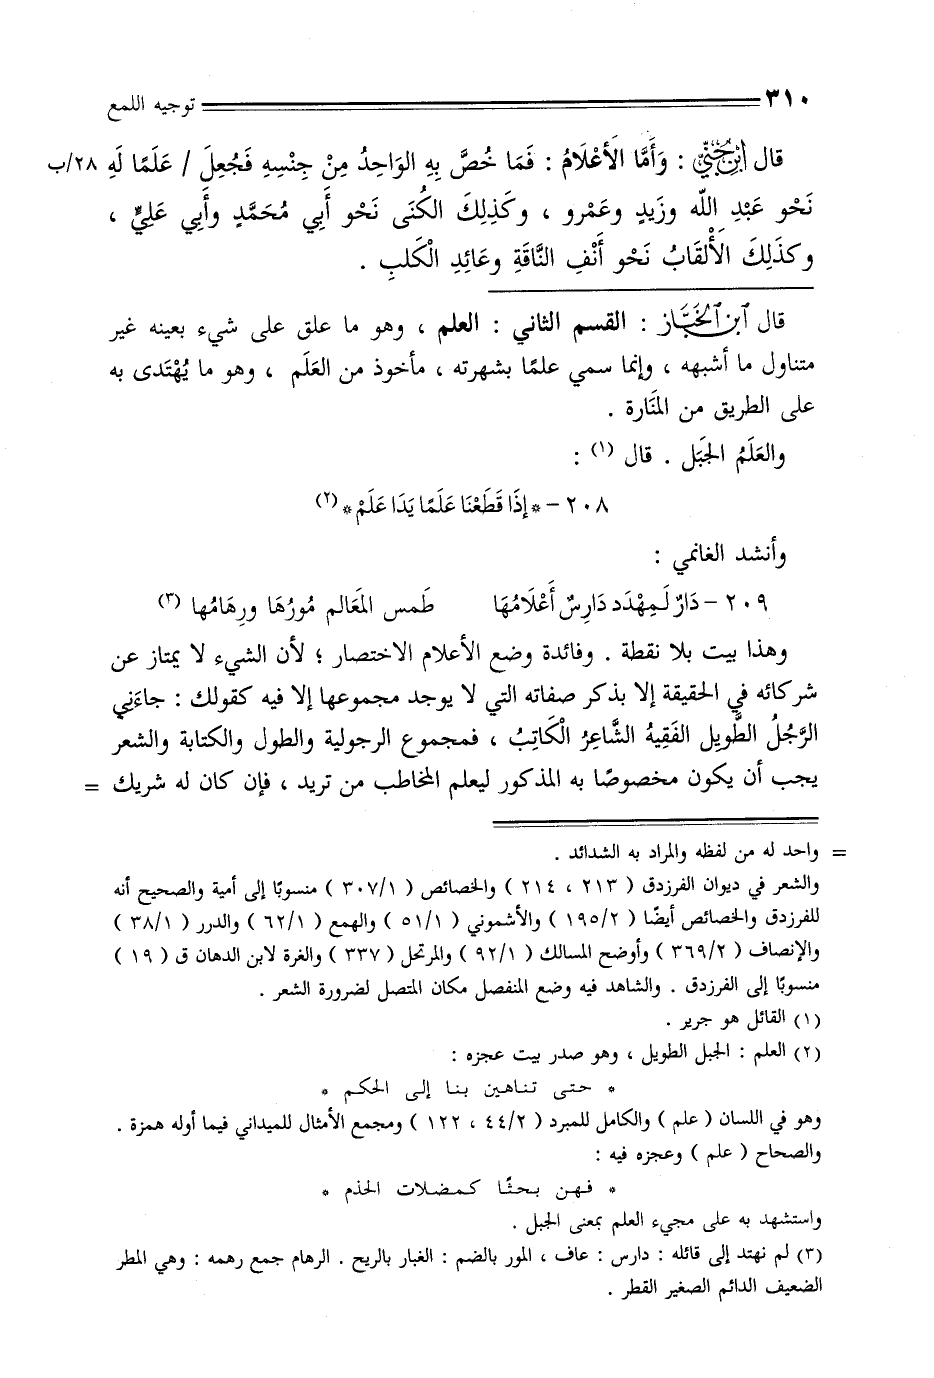 ٣١٠ توجيه اللمع
قال ابن جني : وَأَمَّا الأَعْلَامُ : فَمَا خُصَّ بِهِ الوَاحِدُ مِنْ جِنْسِهِ فَجُعِلَ / عَلَمًا لَهِ ٢٨/ب
نَحْو عَبْدِ اللّه وزَيدٍ وعَمْرو ، وكَذلِكَ الكُنَى نَحْو أَبِي مُحَمَّدٍ وأَبِي عَلِيٍّ ،
وكذَلِكَ الأَلْقَابُ نَحْو أَنْفِ النَّاقَةِ وعَائِدِ الْكَلبِ .
قال ابن الخباز : القسم الثاني : العلم ، وهو ما علق على شيء بعينه غير
متناول ما أشبهه ، وإنما سمي علمًا بشهرته ، مأخوذ من العَلَم ، وهو ما يُهْتَدى به
على الطريق من المَنَارة .
والعَلَمُ الجَبَل . قال (١) :
٢٠٨ – * إِذَا قَطَعْنَا عَلَمًا بَدَا عَلَمْ * (٢)
وأنشد الغانمي :
٢٠٩ – دَارٌ لَـمِهْدَد دَارِسٌ أَعْلَامُهَا طَمس المَعَالم مُورُهَا ورِهَامُها (٣)
وهذا بيت بلا نقطة . وفائدة وضع الأعلام الاختصار ؛ لأن الشيء لا يمتاز عن
شركائه في الحقيقة إلا بذكر صفاته التي لا يوجد مجموعها إلا فيه كقولك : جاءَنِي
الرَّجُلُ الطَّوِيل الفَقِيهُ الشَّاعِرُ الْكَاتِبُ ، فمجموع الرجولية والطول والكتابة والشعر
يجب أن يكون مخصوصًا به المذكور ليعلم المخاطب من تريد ، فإن كان له شريك =
= واحد له من لفظه والمراد به الشدائد .
والشعر في ديوان الفرزدق ( ٢١٣ ، ٢١٤ ) والخصائص ( ٣٠٧/١ ) منسوبًا إلى أمية والصحيح أنه
للفرزدق والخصائص أيضًا ( ١٩٥/٢ ) والأشموني ( ٥١/١ ) والهمع ( ٦٢/١ ) والدرر ( ٣٨/١ )
والإنصاف ( ٣٦٩/٢ ) وأوضح المسالك ( ٩٢/١ ) والمرتجل ( ٣٣٧ ) والغرة لابن الدهان ق ( ١٩ )
منسوبًا إلى الفرزدق . والشاهد فيه وضع المنفصل مكان المتصل لضرورة الشعر .
(١) القائل هو جرير .
(٢) العلم : الجبل الطويل ، وهو صدر بيت عجزه :
* حتى تناهين بنا إلى الحكم *
وهو في اللسان ( علم ) والكامل للمبرد ( ٤٤/٢ ، ١٢٢ ) ومجمع الأمثال للميداني فيما أوله همزة .
والصحاح ( علم ) وعجزه فيه :
* فهن بحثًا كمضلات الخذم *
واستشهد به على مجيء العلم بمعنى الجبل .
(٣) لم نهتد إلى قائله : دارس : عاف ، المور بالضم : الغبار بالريح . الرهام جمع رهمه : وهي المطر
الضعيف الدائم الصغير القطر .